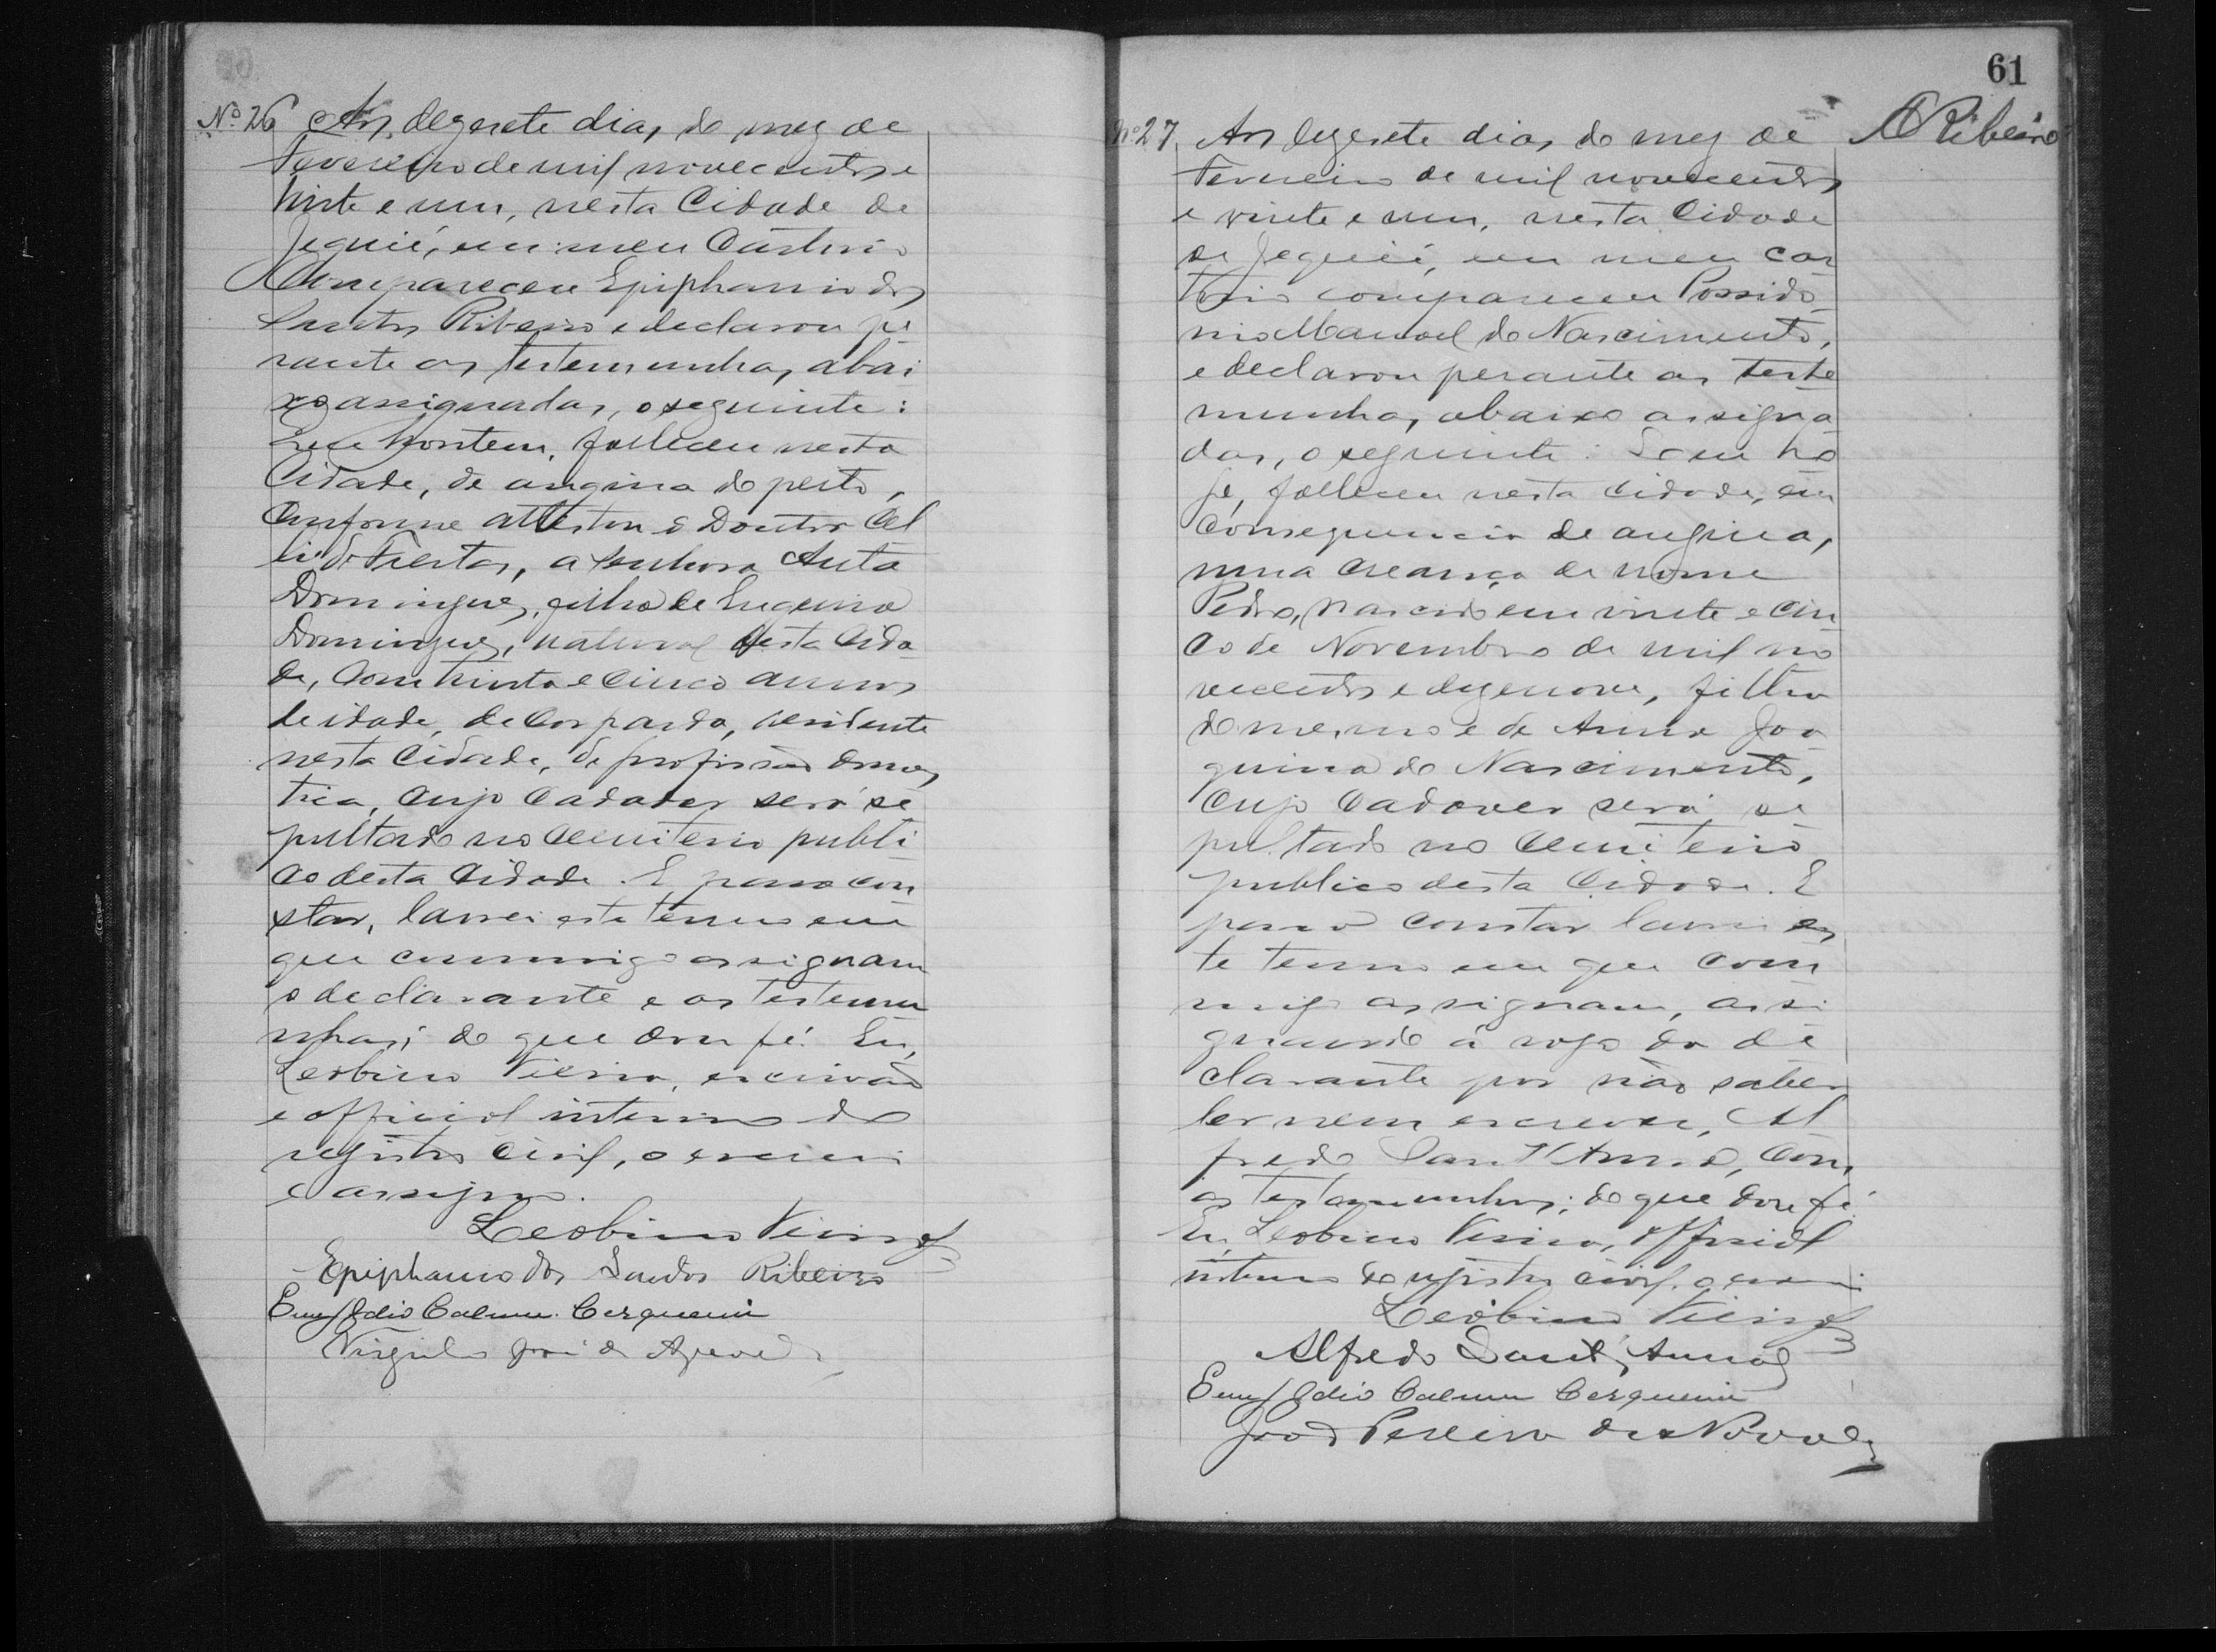 61
A Ribeiro
Nº 26 Aos dezesete dias do mez de
Fevereiro de mil novecentos e
vinte e um, nesta Cidade de
Jequié, em meu Cartorio
Compareceu Epiphanio dos
Santos Ribeiro e declarou pe
rante as testemunhas abai
xo assignadas, o seguinte:
Que hontem, falleceu nesta
Cidade, de angina do peito,
Conforme attestou o Doutor Cel
i de Freitas, a senhora Anta
Domingues, filha de Eugenia
Domingues, natural desta Cida
de, Com trinta e cinco annos
de idade, de Cor parda, residente
nesta Cidade, de profissão domes
tica, Cujo Cadaver será se
pultado no Cemiterio publi
co desta Cidade. E para con
star, lavrei este termo em
que commigo assignam
o declarante e as testemu
nhas; do que dou fé. Eu,
Leobino Vieira, escrivão
e official interino do
registro Civil, o escrevi
e assigno.
Leobino Vieira
Epiphanio dos Santos Ribeiro
Emygdio Calmon Cerqueira
Virgilio José de Azevedo
Nº 27. Aos dezesete dias do mez de
Fevereiro de mil novecentos
e vinte e um, nesta Cidade
de Jequié, em meu Car
torio compareceu Possido
nio Manoel do Nascimento,
e declarou perante as teste
munhas, abaixo assigna
das, o seguinte: Que ho
je, falleceu nesta cidade, em
consequencia de angina,
uma creança de nome
Pedro, nascido em vinte e cin
co de Novembro de mil no
vecentos e dezenove, filho
do mesmo e de Anna Joa
quina do Nascimento,
Cujo Cadaver será se
pultado no Cemiterio
publico desta Cidade. E
para constar lavrei es
te termo em que com
migo assignam, assi
gnando á rogo do de
clarante por não saber
ler nem escrever, Al
fredo Sant'Anna, com
as testemunhas; do que dou fé.
Eu, Leobino Vieira, official
interino do registro civil, o escrevi
Leobino Vieira
Alfredo Sant'Anna
Emygdio Calmon Cerqueira
João Pereira de Novaes